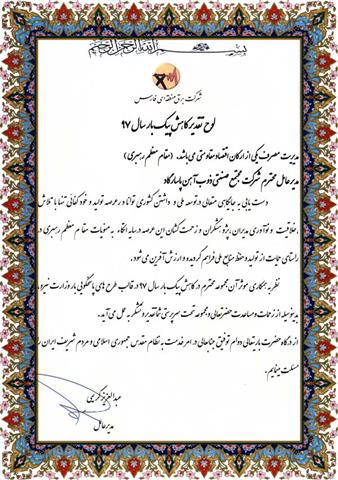 بسم الله الرحمن الرحیم
شرکت برق منطقه‌ای فارس
لوح تقدیر کاهش پیک بار سال ۹۷
مدیریت مصرف یکی از ارکان اقتصاد مقاومتی می‌باشد. (مقام معظم رهبری)
مدیرعامل محترم شرکت مجتمع صنعتی ذوب آهن پاسارگاد
دست یابی به جایگاهی متعالی در توسعه ملی و داشتن کشوری توانا در عرصه تولید و خودکفائی تنها با تلاش
، خلاقیت و نوآوری مدیران، پژوهشگران و زحمت کشان این عرصه در سایه اتکاء به منویات مقام معظم رهبری در
راستای حمایت از تولید و حفظ منابع ملی فراهم گردیده و ارزش آفرین می‌شود.
نظر به همکاری موثر آن مجموعه محترم در کاهش پیک بار سال ۹۷ در قالب طرح های پاسخگویی بار وزارت نیرو،
بدینوسیله از زحمات و مساعدت حضرتعالی و مجموعه تحت سرپرستی شما تقدیر و تشکر به عمل می‌آید.
از درگاه حضرت باریتعالی دوام توفیق جنابعالی در امر خدمت به نظام مقدس جمهوری اسلامی و مردم شریف ایران را
مسئلت می‌نمایم.
عبدالعزیز کریمی
مدیرعامل